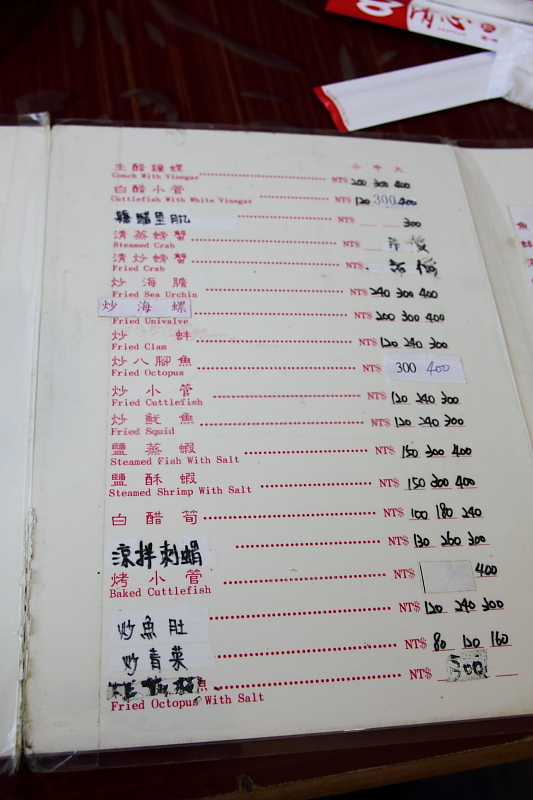 小 中 大
生醋鐘螺 NT$ 200 300 400
Conch With Vinegar
白醋小管 NT$ 120 300 400
Cuttlefish With White Vinegar
糖醋里肌 NT$ 300
清蒸螃蟹 NT$ 時價
Steamed Crab
清炒螃蟹 NT$ 時價
Fried Crab
炒海膽 NT$ 240 300 400
Fried Sea Urchin
炒海螺 NT$ 200 300 400
Fried Univalve
炒 蚌 NT$ 120 240 300
Fried Clam
炒八腳魚 NT$ 300 400
Fried Octopus
炒小管 NT$ 120 240 300
Fried Cuttlefish
炒魷魚 NT$ 120 240 300
Fried Squid
鹽蒸蝦 NT$ 150 300 400
Steamed Fish With Salt
鹽酥蝦 NT$ 150 300 400
Steamed Shrimp With Salt
白醋筍 NT$ 100 180 240
涼拌刺蝟 NT$ 130 260 300
烤小管 NT$ 400
Baked Cuttlefish
炒魚肚 NT$ 120 240 300
炒青菜 NT$ 80 120 160
魚 NT$ 300
Fried Octopus With Salt
魚